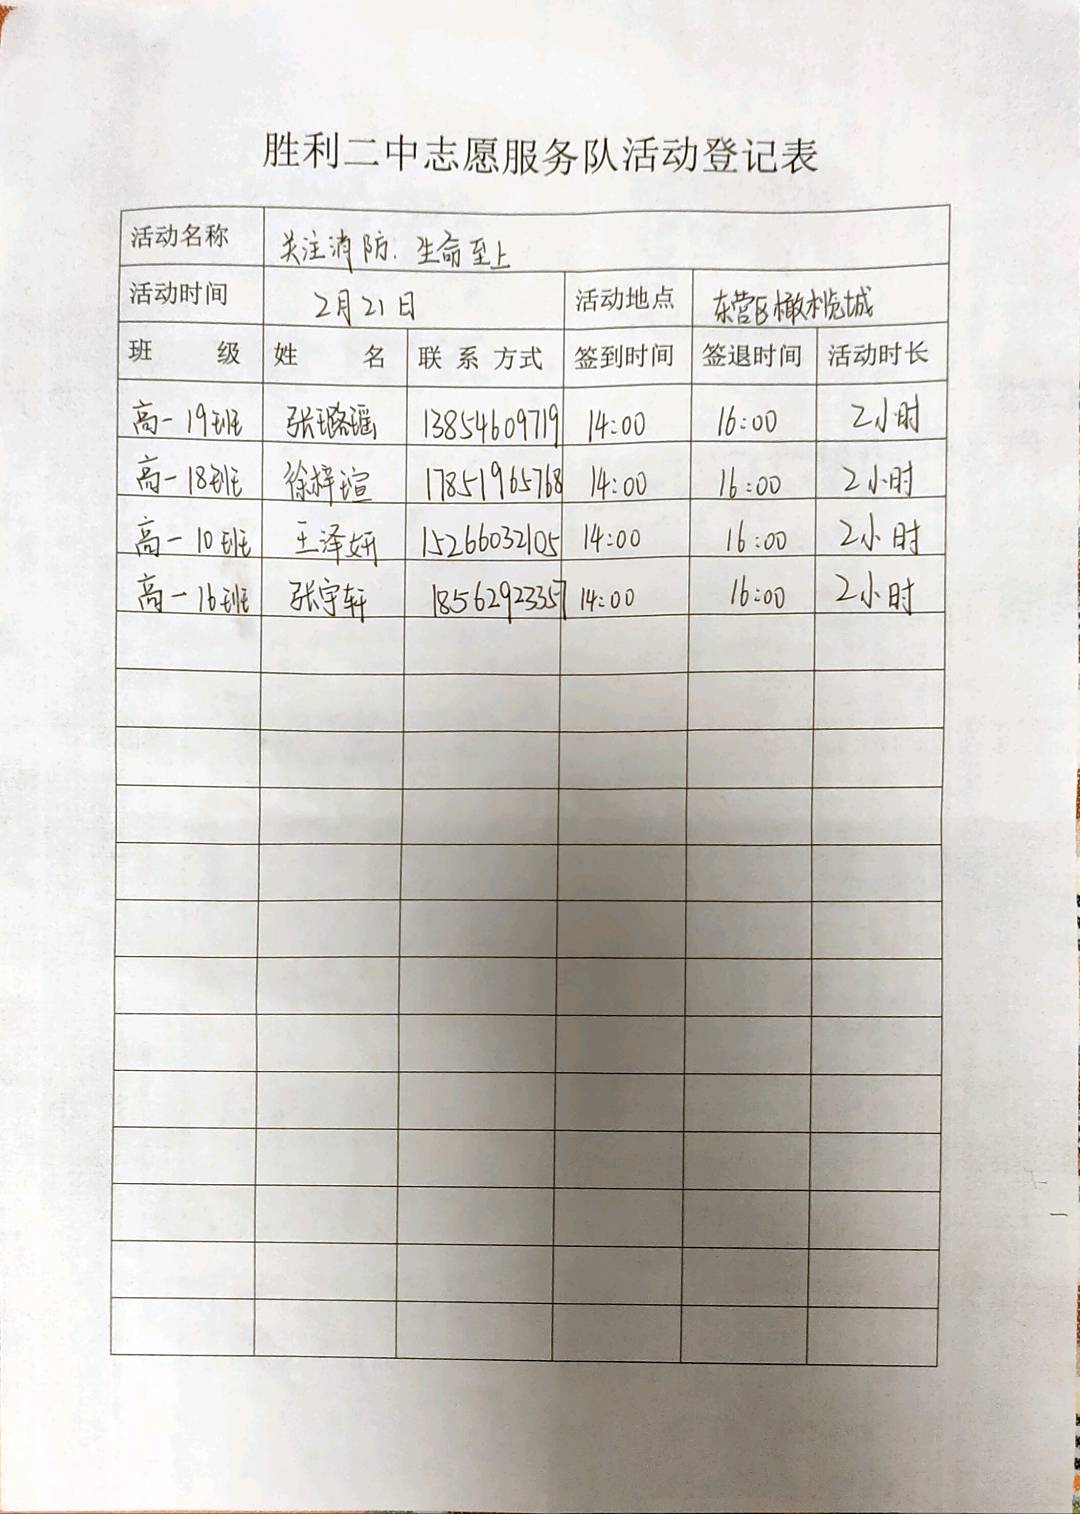 胜利二中志愿服务队活动登记表
活动名称 关注消防.生命至上
活动时间 2月21日 活动地点 东营区橄榄城
班 级 姓 名 联 系 方式 签到时间 签退时间 活动时长
高一19班 张璐瑶 13854609719 14:00 16:00 2小时
高一18班 徐梓瑄 17851965768 14:00 16:00 2小时
高一10班 王泽妍 15266032105 14:00 16:00 2小时
高一16班 张宇轩 18562923357 14:00 16:00 2小时